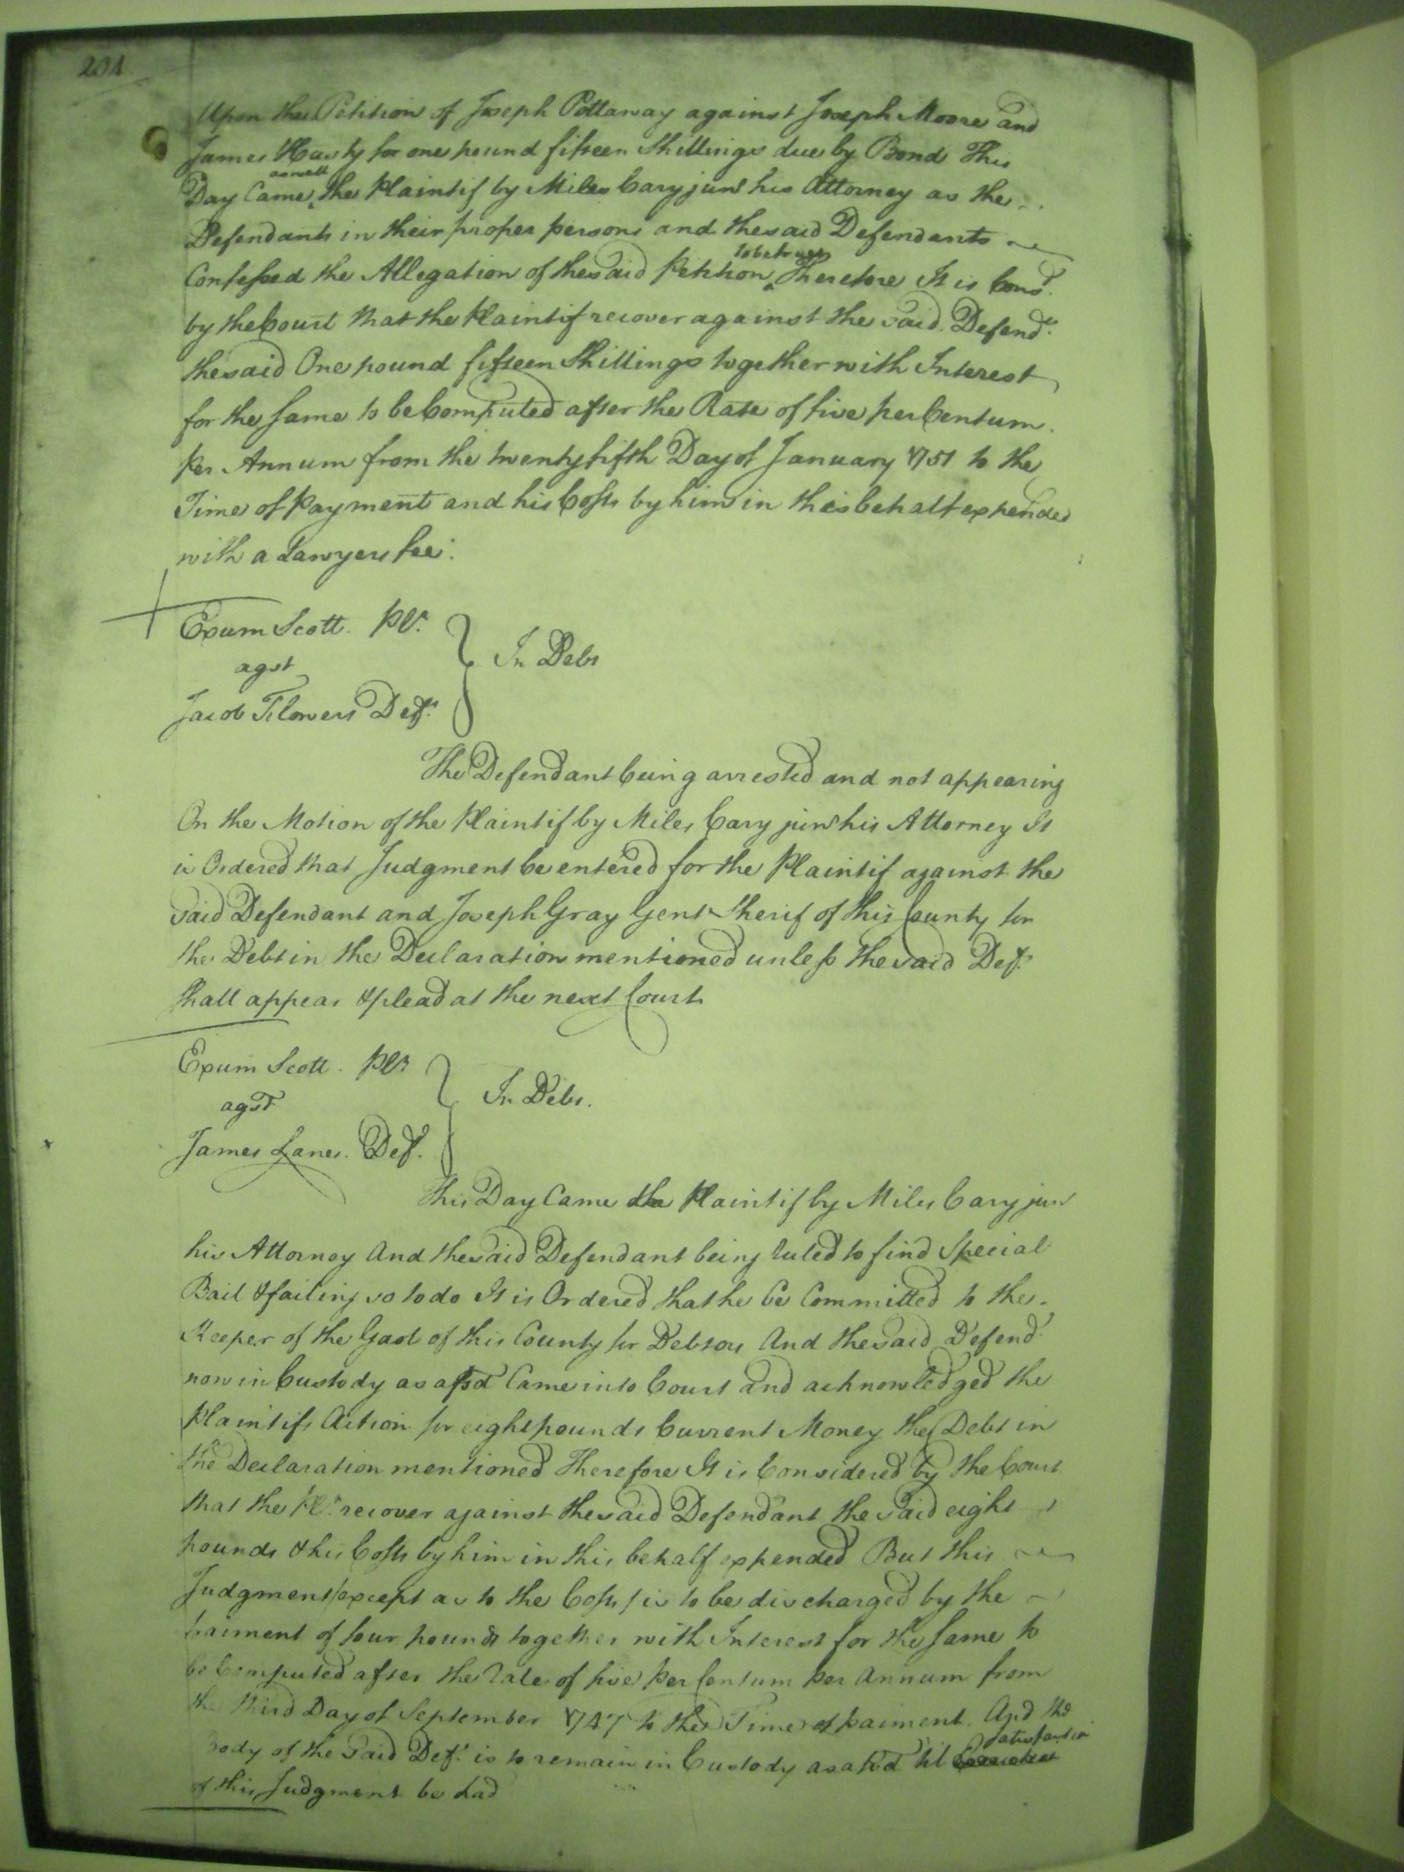 201
Upon the Petition of Joseph Pottaway against Joseph Moore and
James for one pound fifteen Shillings due by Bond This
as well
Day Came the Plaintif by Miles Cary junr his Attorney as the
Defendants in their proper persons and the said Defendants
to be true
Confessed the Allegation of the said Petition Therefore It is Cons.d
by the Court that the Plaintif recover against the said Defend.ts
the said One pound fifteen Shillings together with Interest
for the same to be Computed after the Rate of five per Centum
per Annum from the twenty fifth Day of January 1751 to the
Time of Payment and his Costs by him in this behalf expended
with a Lawyers fee.
Exum Scott. Plt.
agst
Jacob Flowers Deft.
In Debt
The Defendant being arrested and not appearing
On the Motion of the Plaintif by Miles Cary junr his Attorney It
is Ordered that Judgment be entered for the Plaintif against the
said Defendant and Joseph Gray Gent Sherif of this County for
the Debt in the Declaration mentioned unless the said Deft.
shall appear & plead at the next Court
Exum Scott. Plt
agst
James Lanes. Deft.
In Debt.
This Day Came the Plaintif by Miles Cary junr
his Attorney And the said Defendant being ruled to find Special
Bail & failing so to do It is Ordered that he be Committed to the
Keeper of the Gaol of this County for Debtors And the said Defend.t
now in Custody as afsd Came into Court and acknowledged the
Plaintifs Action for eight pounds Current Money the Debt in
the Declaration mentioned Therefore It is Considered by the Court
that the Plt. recover against the said Defendant the said eight
pounds & his Costs by him in this behalf expended But this
Judgment (except as to the Costs) is to be discharged by the
paiment of four pounds together with Interest for the same to
be Computed after the rate of five per Centum per Annum from
the third Day of September 1747 to the Time of paiment. And the
satisfaction
Body of the said Deft. is to remain in Custody as afsd til
of this Judgment be had